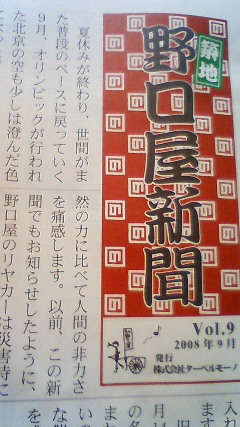 築地
野口屋新聞
Vol.9
2008年9月
発行
株式会社ターベルモーノ
夏休みが終わり、世間がま
た普段のペースに戻っていく
9月、オリンピックが行われ
た北京の空も少しは澄んだ色
然の力に比べて人間の非力さ
を痛感します。以前、この新
聞でもお知らせしたように、
野口屋のリヤカーは災害時に